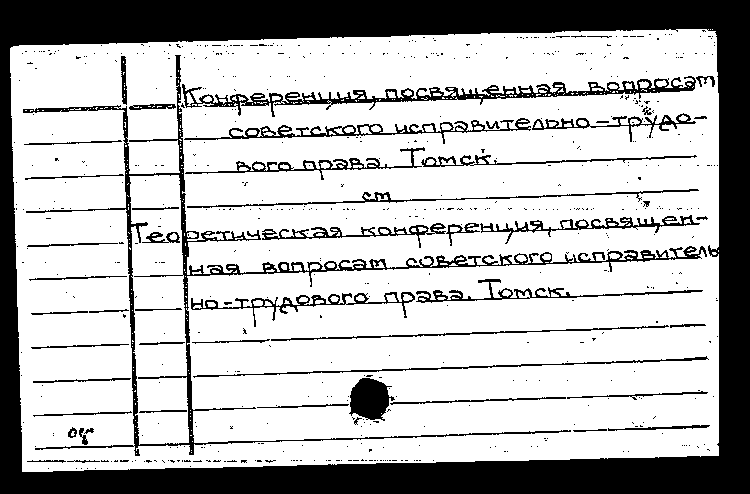 Конференция, посвященная вопросам
советского исправительно-трудо-
вого права. Томск.
см
Теоретическая конференция, посвящен-
ная вопросам советского исправитель
но-трудового права. Томск.